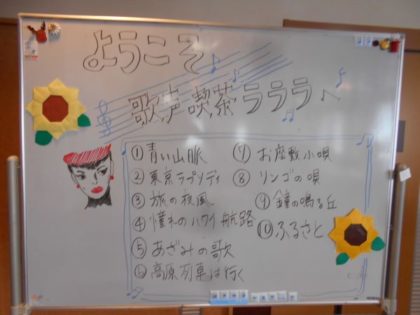 ようこそ
歌声喫茶ラララへ
①青い山脈
②東京ラプソディ
③旅の夜風
④憧れのハワイ航路
⑤あざみの歌
⑥高原列車は行く
⑦お座敷小唄
⑧リンゴの唄
⑨鐘の鳴る丘
⑩ふるさと